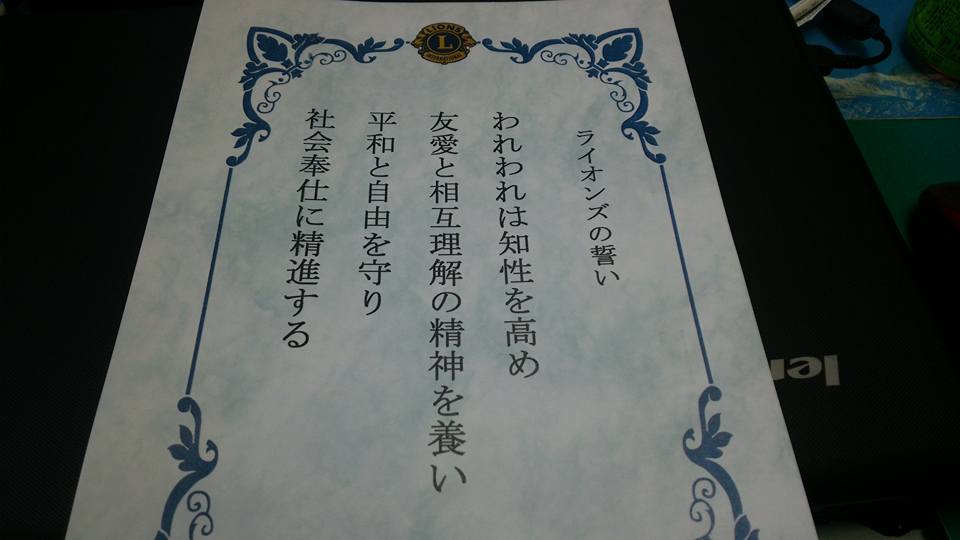 LIONS
L
INTERNATIONAL
ライオンズの誓い
われわれは知性を高め
友愛と相互理解の精神を養い
平和と自由を守り
社会奉仕に精進する
len